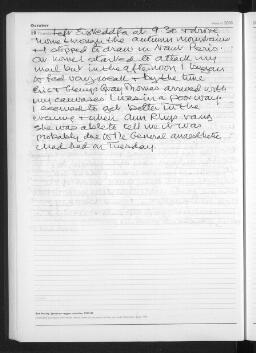 October
2005
Left Sioskeddfa at 9.30 & drove
home through the autumn mountains
& I stopped to draw in Nant Peris.
On home I started to attack my
mail but in the afternoon I began
to feel very small & by the time
Eric & Glenys Gray Thomas arrived with
my canvases I was in a poor way.
I seemed to get better in the
evening & when Ann Rhys rang
she was able to tell me it was
probably due to the General anaesthetic
I had had on Tuesday